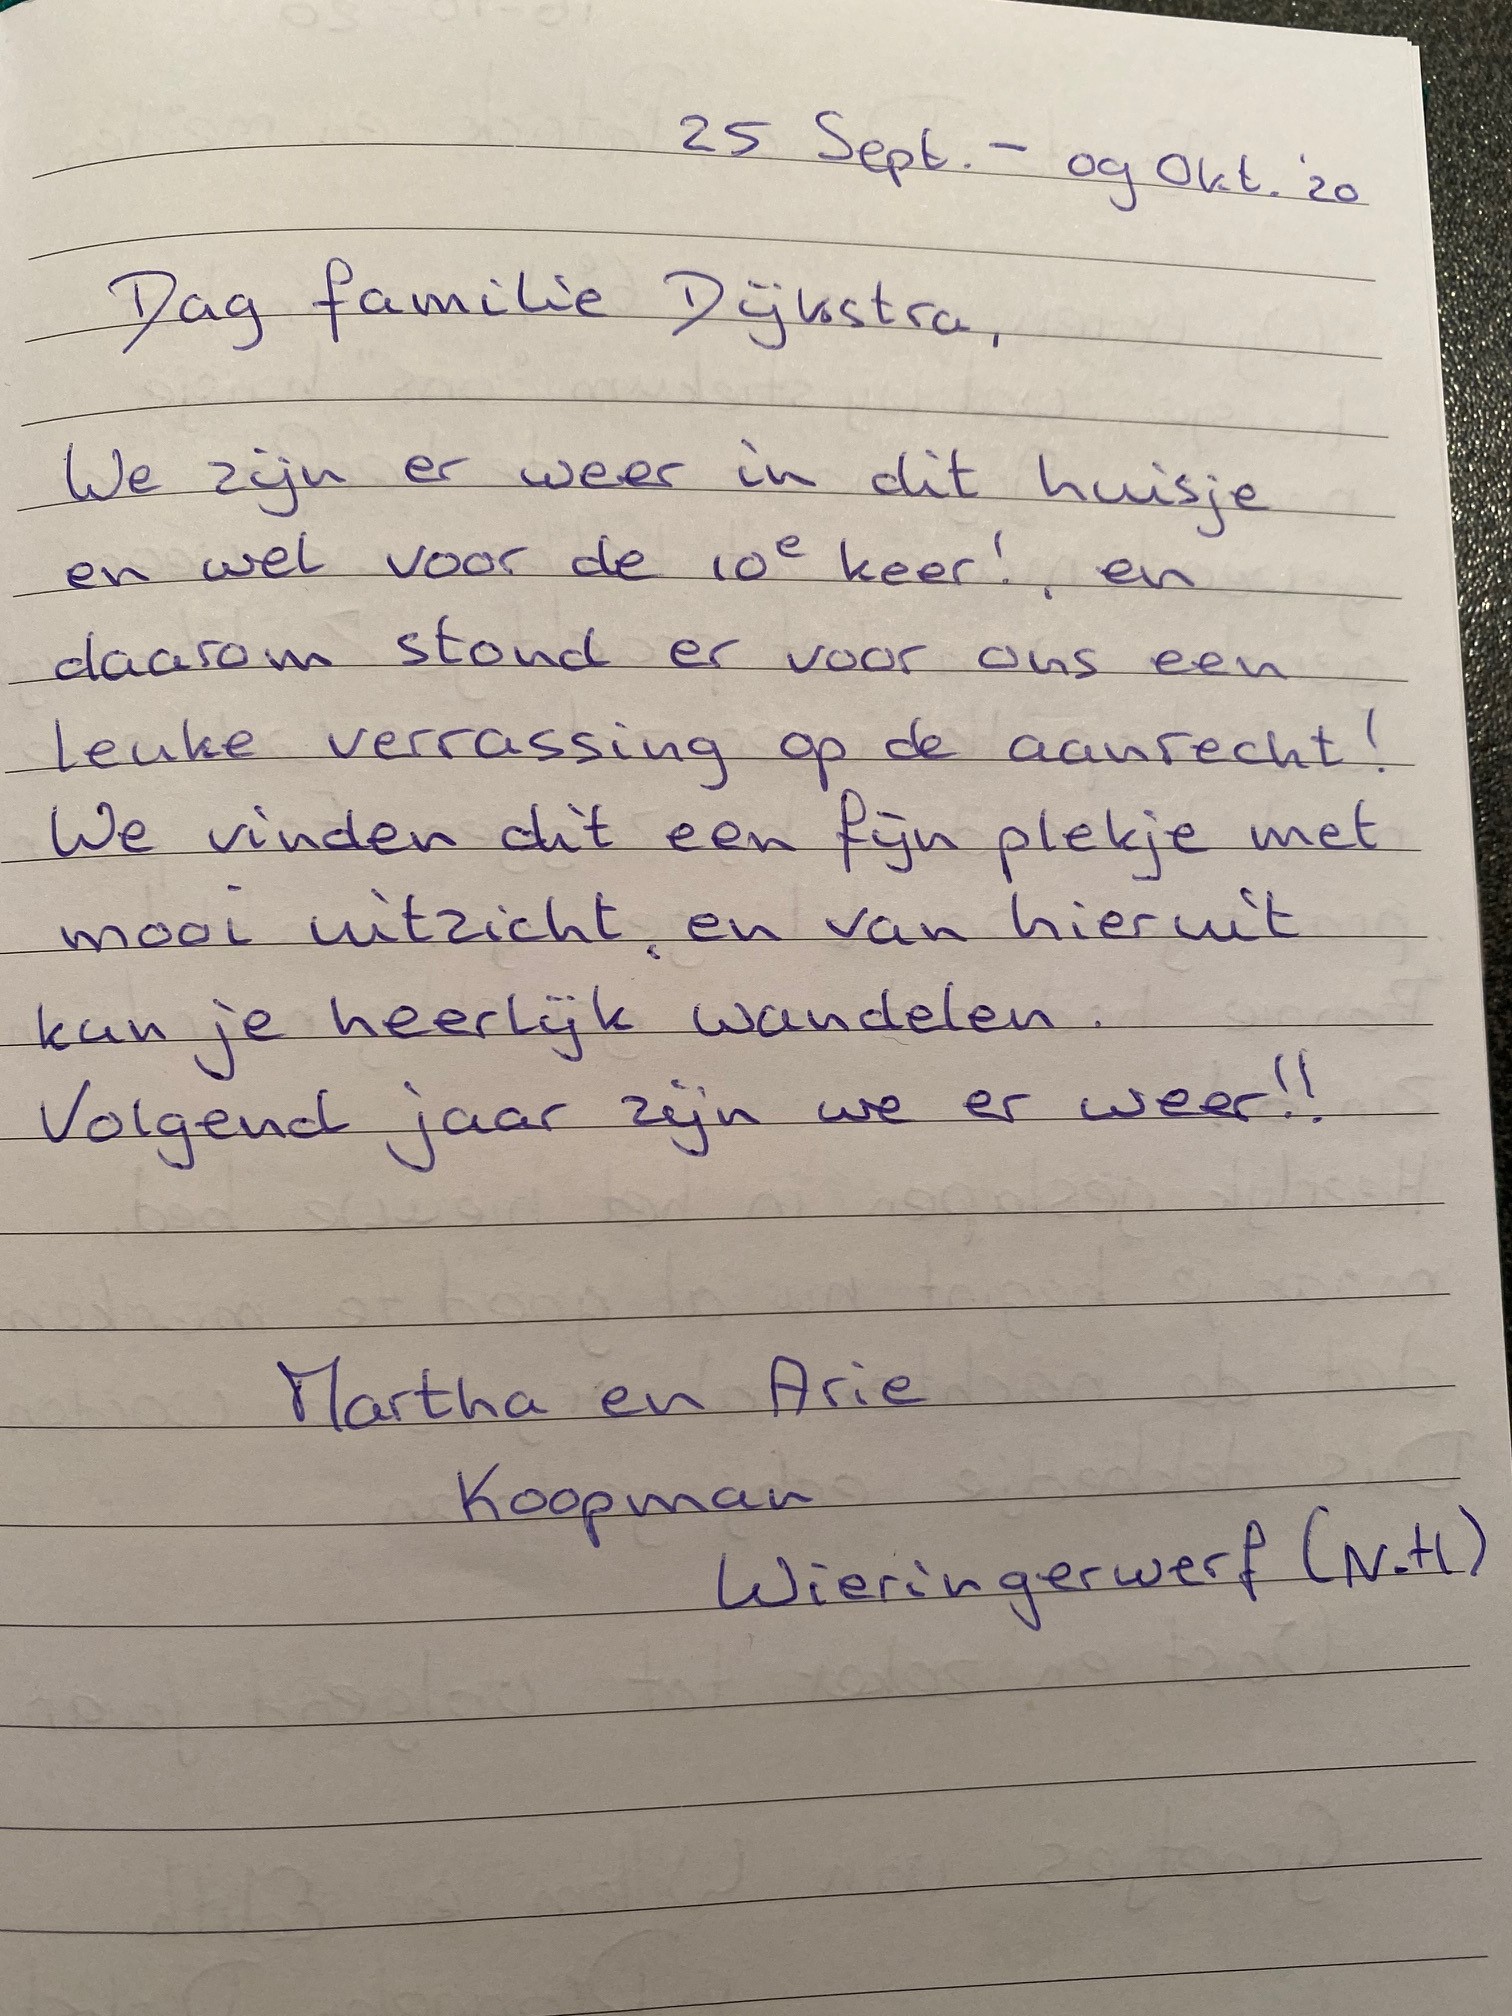 25 Sept. - 09 Okt. '20
Dag familie Dijkstra,
We zijn er weer in dit huisje
en wel voor de 10e keer!, en
daarom stond er voor ons een
leuke verrassing op de aanrecht!
We vinden dit een fijn plekje met
mooi uitzicht, en van hieruit
kun je heerlijk wandelen.
Volgend jaar zijn we er weer!!
Martha en Arie
Koopman
Wieringerwerf (N.H)